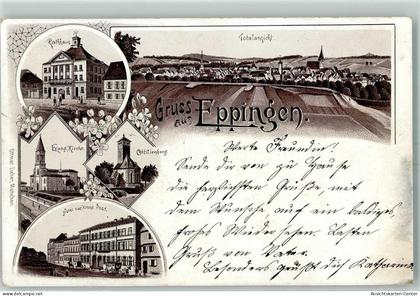 Rathhaus
Totalansicht
Gruss
aus Eppingen.
Evang. Kirche
Ottilienberg
Hotel zur Krone Post.
Werte Freundin!
Sende dir von zu Hause
die herzlichsten Grüße, mit
dem Wunsche, auf ein baldiges
frohes Wiedersehen. Besten
Gruß von Vater.
Besonders grüßt dich Katharina
www.ansichtskarten-center.de
Ansichtskarten-Center